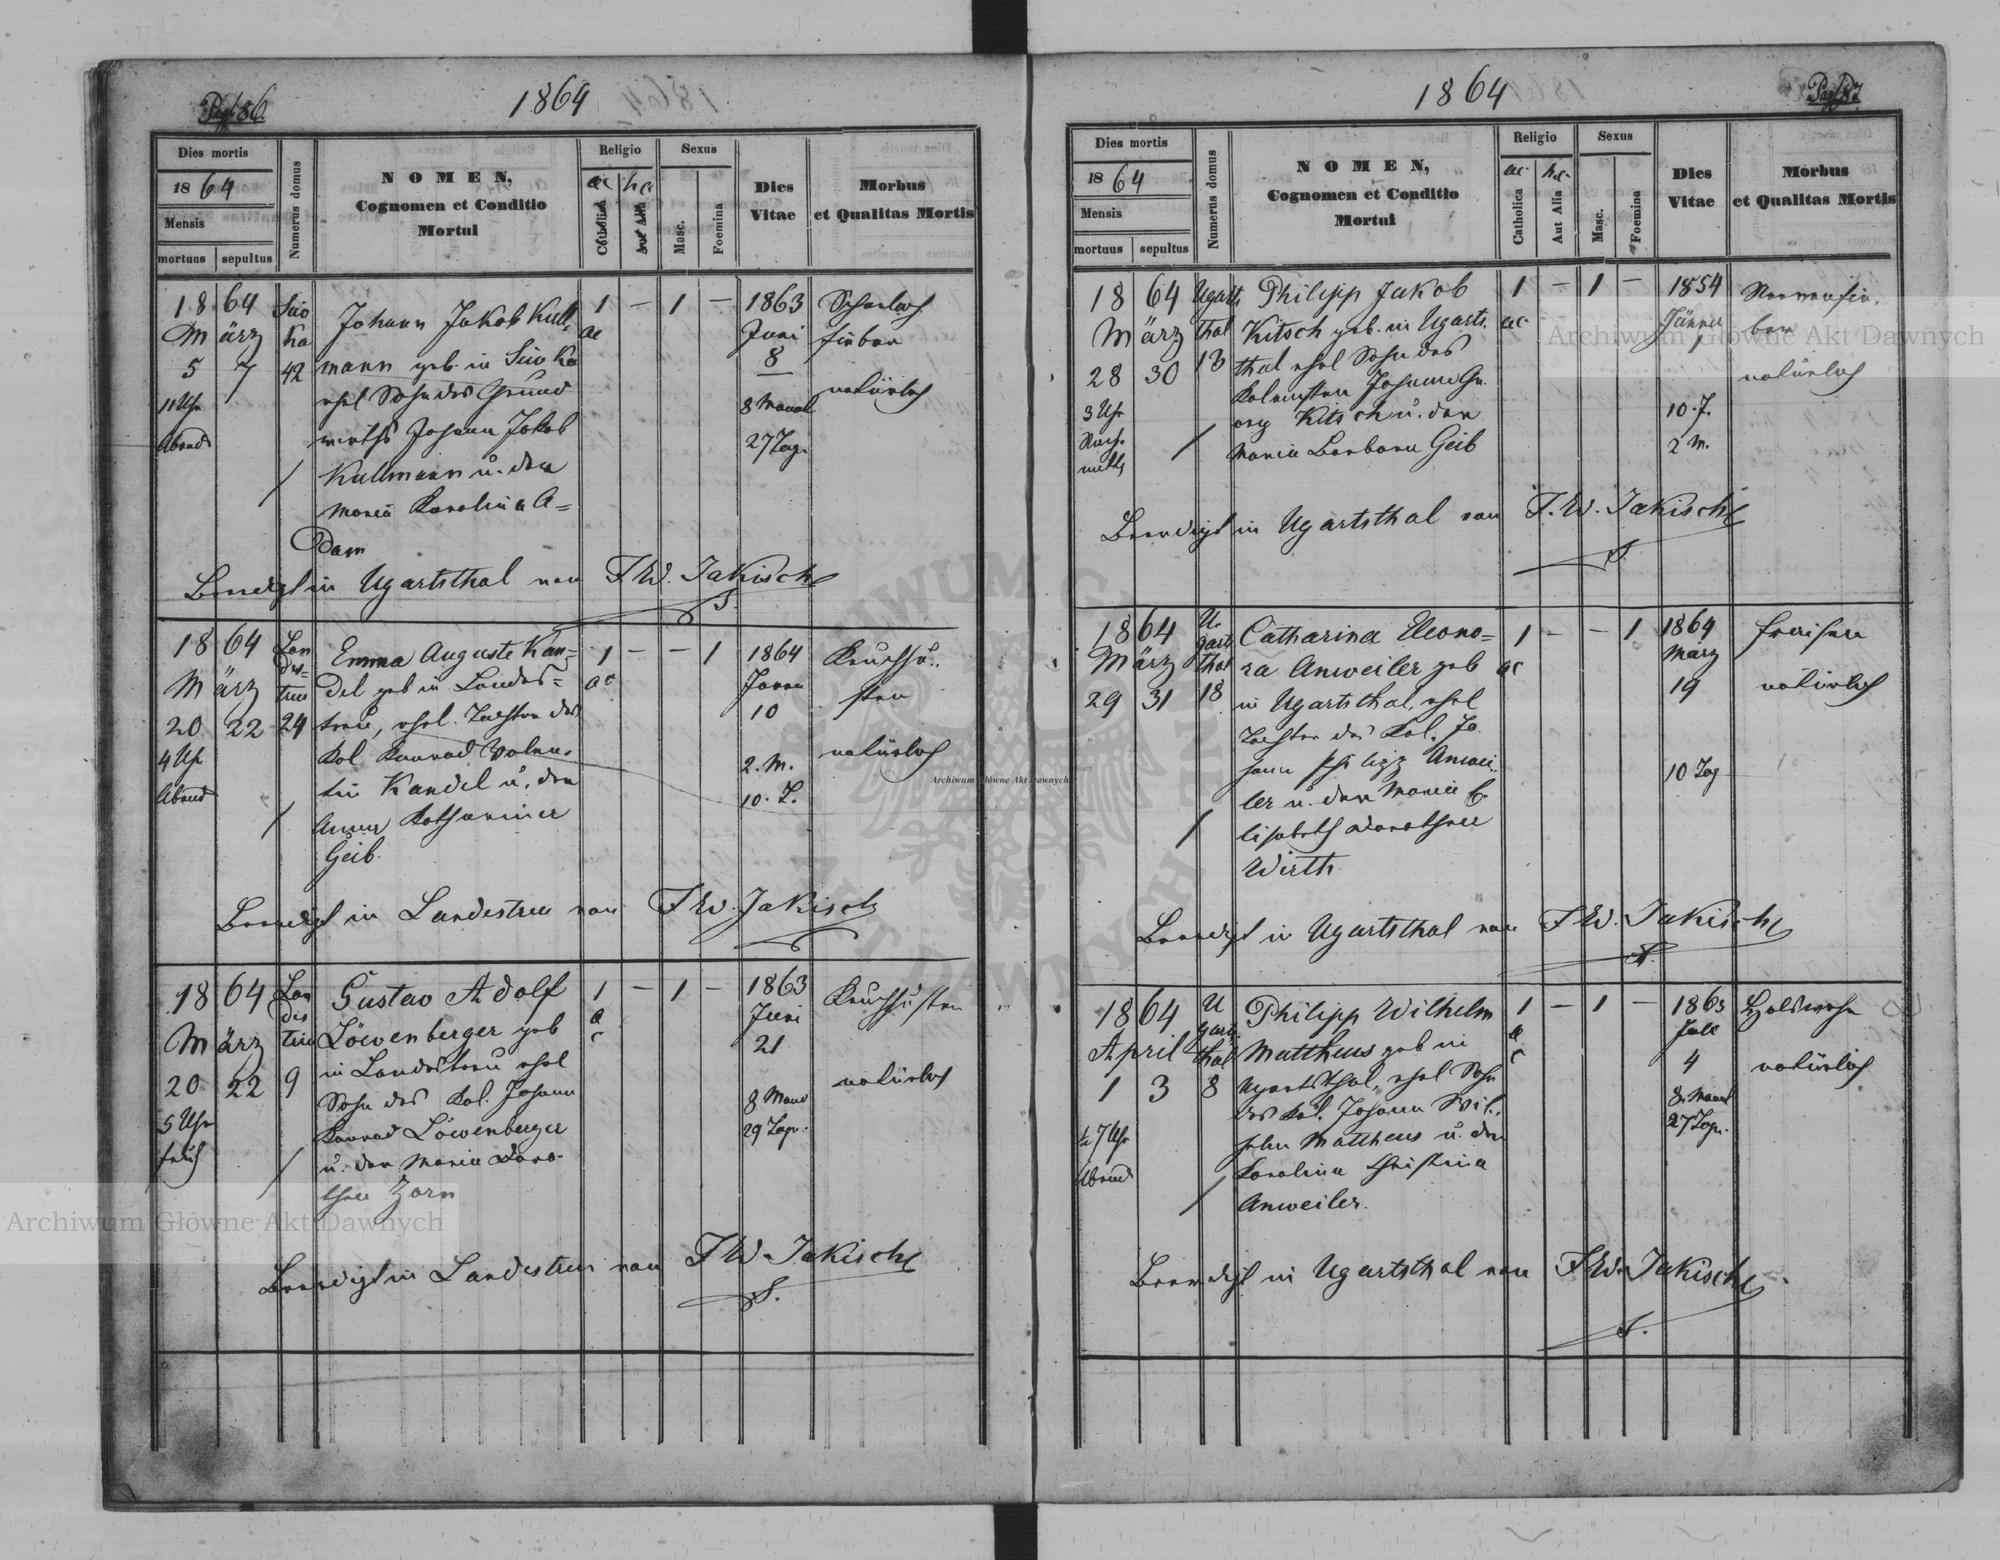 Pag. 86.
1864
Dies mortis
1864
Mensis
mortuus
sepultus
Numerus domus
NOMEN,
Cognomen et Conditio
Mortui
Religio
ac
hc
Catholica
Aut Alia
Sexus
Masc.
Foemina
Dies
Vitae
Morbus
et Qualitas Mortis
1864
März
5 7
11 Uhr
Abends
42
Johann Jakob Kull-
mann geb. in
ehel Sohn des Grund
wirths Johann Jakob
Kullmann u. der
Maria Karolina A=
dam
1 – 1 –
ac
1863
Juni
8
8 Monat
27 Tage
Scharlach
fieber
natürlich
Beerdigt in Ugartsthal von F.W. Jakisch
1864
März
20 22
4 Uhr
Abends
Lan
des=
treu
24
Emma Auguste Kan=
del geb in Landes=
treu, ehel. Tochter des
Kol Konrad Valen-
tin Kandel u. der
Anna Katharina
Geib.
1 – – 1
ac
1864
Janu
10
2. M.
10. T.
Keuchhu-
sten
natürlich
Beerdigt in Landestreu von F.W. Jakisch
1864
März
20 22
5 Uhr
früh
Lan
des
treu
9
Gustav Adolf
Löwenberger geb
in Landestreu ehel
Sohn des Kol. Johann
Konrad Löwenberger
u. der Maria Doro-
thea Zorn
1 – 1 –
a
c
1863
Juni
21
8 Mona
29 Tage.
Keuchhusten
natürlich
Beerdigt in Landestreu von F.W. Jakisch
Archiwum Główne Akt Dawnych
Pag. 87
1864
Dies mortis
1864
Mensis
mortuus
sepultus
Numerus domus
NOMEN,
Cognomen et Conditio
Mortui
Religio
ac
hc
Catholica
Aut Alia
Sexus
Masc.
Foemina
Dies
Vitae
Morbus
et Qualitas Mortis
1864
März
28 30
3 Uhr
Nach-
mittg
Ugarts
thal
13
Philipp Jakob
Kitsch geb. in Ugarts-
thal ehel Sohn des
Kolonisten Johann Ge-
org Kitsch u. der
Maria Barbara Geib
1 – 1 –
ac
1854
Jänner
1
10. J.
2 M.
Nervenfie-
ber
natürlich
Beerdigt in Ugartsthal von F.W. Jakisch
1864
März
29 31
U-
garts
thal
18
Catharina Eleono=
ra Anweiler geb
in Ugartsthal, ehel
Tochter des Kol. Jo-
hann Philipp Anwei-
ler u. der Maria E-
lisabeth Dorothea
Wirth.
1 – – 1
ac
1864
März
19
10 Tag
Fraisen
natürlich
Beerdigt in Ugartsthal von F.W. Jakisch
1864
April
1 3
½7 Uhr
Abends
U
garts
thal
8
Philipp Wilhelm
Mattheus geb in
Ugartsthal, ehel Sohn
des Kol. Johann Wil-
helm Mattheus u. der
Karolina Christina
Anweiler.
1 – 1 –
a
c
1863
Juli
4
8. Monat
27 Tage.
natürlich
Beerdigt in Ugartsthal von F.W. Jakisch
Archiwum Główne Akt Dawnych
Archiwum Główne Akt Dawnych